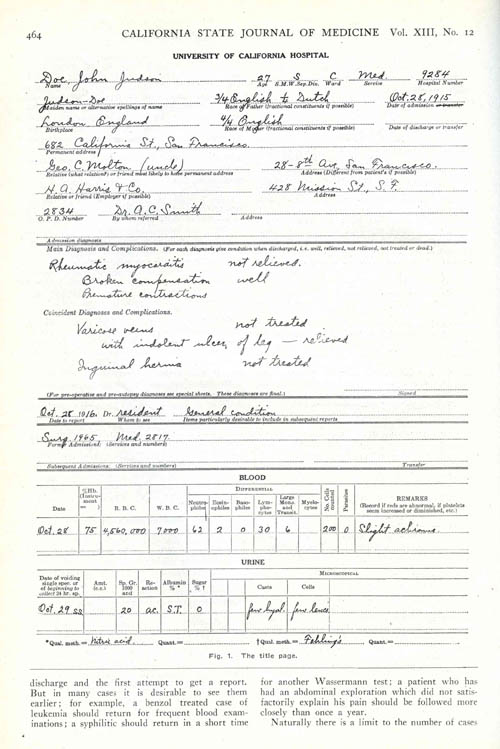 464 CALIFORNIA STATE JOURNAL OF MEDICINE Vol. XIII, No. 12
UNIVERSITY OF CALIFORNIA HOSPITAL
Doe, John Judson 27 S C Med. 9284
Name Age S.M.W.Sep.Div. Ward Service Hospital Number
Judson-Doe 3/4 English to Dutch Oct. 28, 1915
Maiden name or alternative spellings of name Race of Father (fractional constituents if possible) Date of admission or transfer
London England 4/4 English
Birthplace Race of Mother (fractional constituents if possible) Date of discharge or transfer
682 California St., San Francisco.
Permanent address
Geo. C. Molton (uncle) 28-8th Ave, San Francisco.
Relative (what relation) or friend most likely to know permanent address Address (Different from patient's if possible)
H. A. Harris & Co. 428 Mission St., S. F.
Relative or friend (Employer if possible) Address
2834 Dr. A. C. Smith
O. P. D. Number By whom referred Address
Admission diagnosis
Main Diagnosis and Complications. (For each diagnosis give condition when discharged, i.e. well, relieved, not relieved, not treated or dead.)
Rheumatic myocarditis not relieved.
Broken compensation well
Premature contractions
Coincident Diagnoses and Complications.
Varicose veins not treated
with indolent ulcer of leg — relieved
Inguinal hernia not treated
(For pre-operative and pre-autopsy diagnoses see special sheets. These diagnoses are final.) Signed
Oct. 28 1916. Dr. resident General condition
Date to report Whom to see Items particularly desirable to include in subsequent reports
Surg. 1965 Med. 2817.
Former Admissions: (Services and numbers)
Subsequent Admissions: (Services and numbers) Transfer
BLOOD
Date %Hb. (Instrument = ) R. B. C. W. B. C. DIFFERENTIAL Neutrophiles Eosinophiles Basophiles Lymphocytes Large Mono. and Transit. Myelocytes No. Cells counted Parasites REMARKS (Record if reds are abnormal, if platelets seem increased or diminished, etc.)
Oct. 28 75 4,560,000 7,000 62 2 0 30 6 200 0 Slight achromia.
URINE
Date of voiding single spec. or of beginning to collect 24 hr. sp. Amt. (c.c.) Sp. Gr. 1000 and Reaction Albumin % * Sugar % † MICROSCOPICAL Casts Cells
Oct. 29 SS 20 ac. S.T. 0 few hyal. few leuc.
*Qual. meth. = Nitric acid. Quant. = †Qual. meth. = Fehling's Quant. =
Fig. 1. The title page.
discharge and the first attempt to get a report.
But in many cases it is desirable to see them
earlier; for example, a benzol treated case of
leukemia should return for frequent blood exam-
inations; a syphilitic should return in a short time
for another Wassermann test; a patient who has
had an abdominal exploration which did not satis-
factorily explain his pain should be followed more
closely than once a year.
Naturally there is a limit to the number of cases